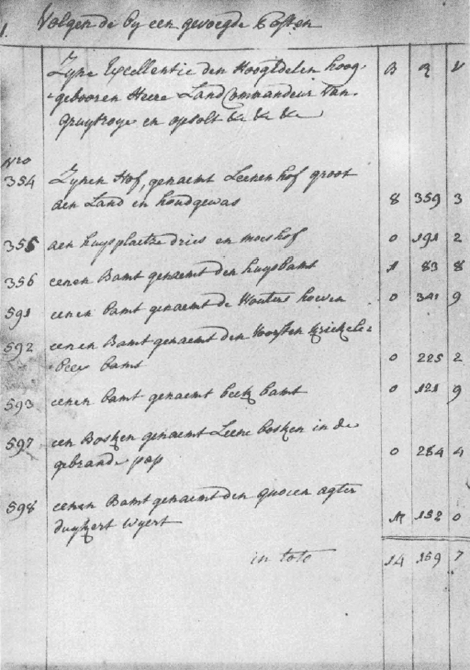 1. Volgende by een gevoegde Costen
B R V
Zyne Excellentie den HoogEdelen hoog-
gebooren Heere LandCommandeur van
Gruytroye en opolt &c &c &c
Nro
354 Zynen Hof, genaemt Leenenhof groot
aen Land in houdgewas 8 359 3
355 aen huysplaetze dries en moeshof 0 191 2
356 eenen Bamt genaemt den huysbamt 1 83 8
591 eenen bamt genaemt de Wouters hoeven 0 341 9
592 eenen Bamt genaemt den Voorsten
beer bamt 0 225 2
593 eenen bamt genaemt beek bamt 0 121 9
597 een Bosken genaemt Leene bosken in de
gebrande pap 0 284 4
598 eenen Bamt genaemt den agter
wyert 152 0
in tote 14 159 7